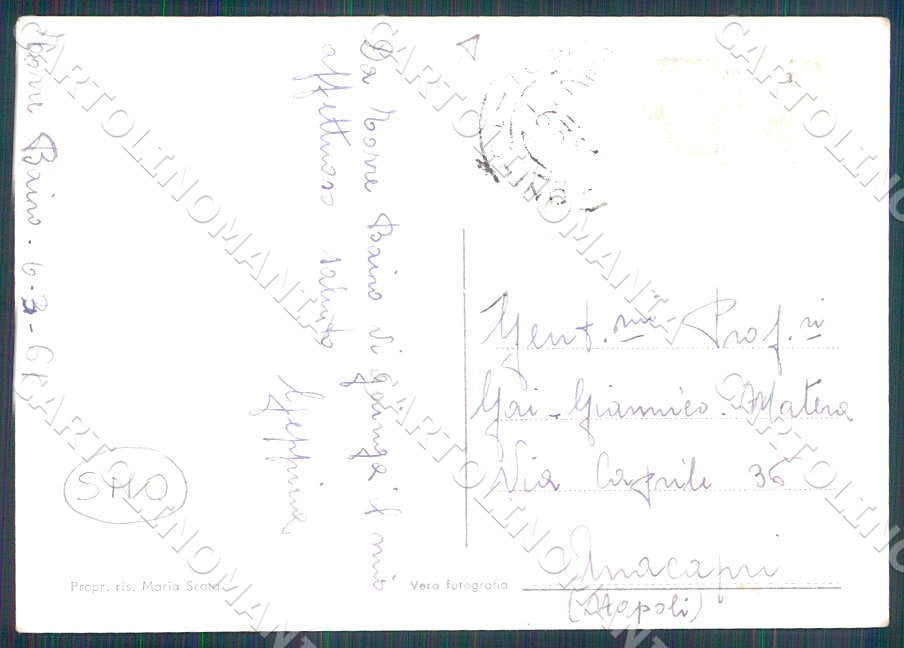 Torre Baino. 6-3-61
Da Torre Baino vi giunga il mio
affettuoso saluto
Geppina
Gent.mi Prof.ri
Gai-Giannico-Matera
Via Caprile 36
Anacapri
(Napoli)
SMQ
Propr. ris. Maria
Vera fotografia
CARTOLINOMANIA
CARTOLINOMANIA
CARTOLINOMANIA
CARTOLINOMANIA
CARTOLINOMANIA